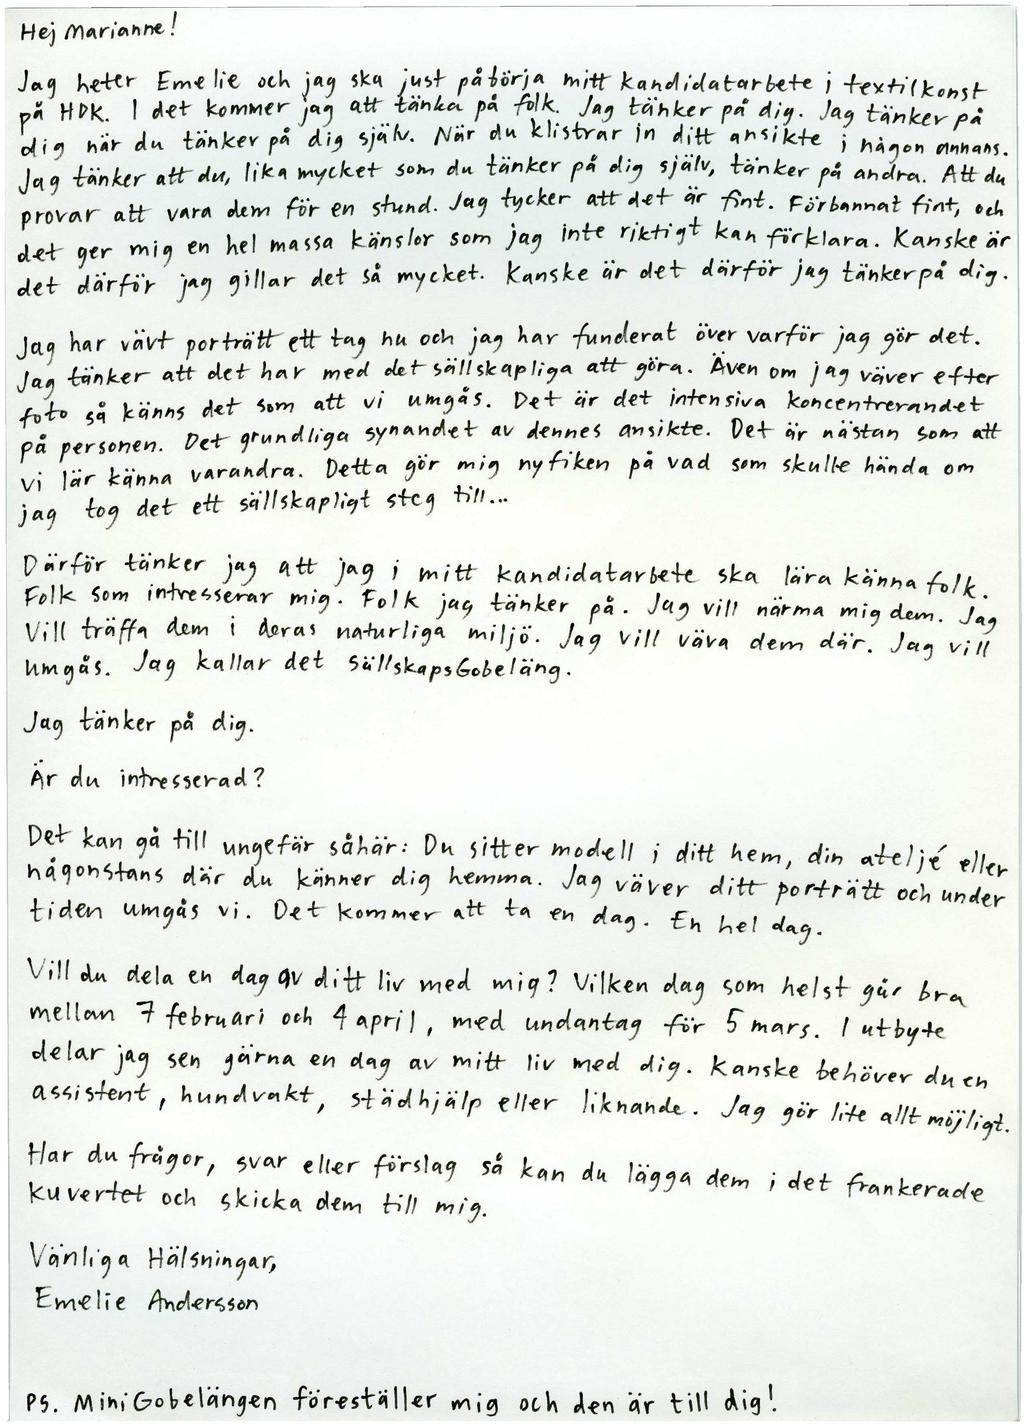 Hej Marianne!
Jag heter Emelie och jag ska just påbörja mitt kandidatarbete i textilkonst
på HDK. I det kommer jag att tänka på folk. Jag tänker på dig. Jag tänker på
dig när du tänker på dig själv. När du klistrar in ditt ansikte i någon annans.
Jag tänker att du, lika mycket som du tänker på dig själv, tänker på andra. Att du
provar att vara dem för en stund. Jag tycker att det är fint. Förbannat fint, och
det ger mig en hel massa känslor som jag inte riktigt kan förklara. Kanske är
det därför jag gillar det så mycket. Kanske är det därför jag tänker på dig.
Jag har vävt porträtt ett tag nu och jag har funderat över varför jag gör det.
Jag tänker att det har med det sällskapliga att göra. Även om jag väver efter
foto så känns det som att vi umgås. Det är det intensiva koncentrerandet
på personen. Det grundliga synandet av dennes ansikte. Det är nästan som att
vi lär känna varandra. Detta gör mig nyfiken på vad som skulle hända om
jag tog det ett sällskapligt steg till...
Därför tänker jag att jag i mitt kandidatarbete ska lära känna folk.
Folk som intresserar mig. Folk jag tänker på. Jag vill närma mig dem. Jag
Vill träffa dem i deras naturliga miljö. Jag vill väva dem där. Jag vill
umgås. Jag kallar det SällskapsGobeläng.
Jag tänker på dig.
Är du intresserad?
Det kan gå till ungefär såhär: Du sitter modell i ditt hem, din ateljé eller
någonstans där du känner dig hemma. Jag väver ditt porträtt och under
tiden umgås vi. Det kommer att ta en dag. En hel dag.
Vill du dela en dag av ditt liv med mig? Vilken dag som helst går bra
mellan 7 februari och 4 april, med undantag för 5 mars. I utbyte
delar jag sen gärna en dag av mitt liv med dig. Kanske behöver du en
assistent, hundvakt, städhjälp eller liknande. Jag gör lite allt möjligt.
Har du frågor, svar eller förslag så kan du lägga dem i det frankerade
kuvertet och skicka dem till mig.
Vänliga Hälsningar,
Emelie Andersson
PS. MiniGobelängen föreställer mig och den är till dig!